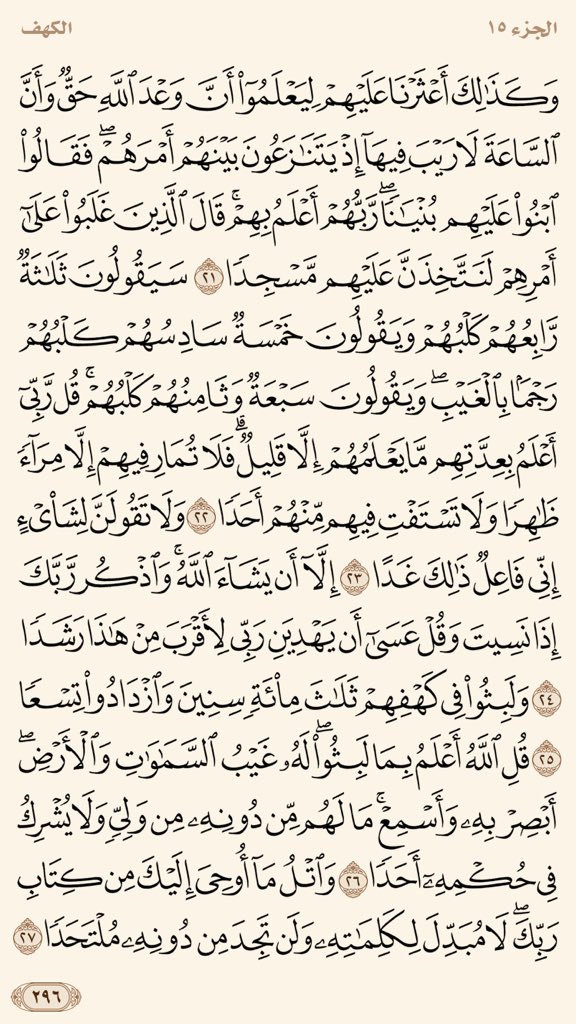 الجزء ١٥
الكهف
وَكَذَٰلِكَ أَعْثَرْنَا عَلَيْهِمْ لِيَعْلَمُوٓا۟ أَنَّ وَعْدَ ٱللَّهِ حَقٌّ وَأَنَّ
ٱلسَّاعَةَ لَا رَيْبَ فِيهَآ إِذْ يَتَنَٰزَعُونَ بَيْنَهُمْ أَمْرَهُمْ ۖ فَقَالُوا۟
ٱبْنُوا۟ عَلَيْهِم بُنْيَٰنًا ۖ رَّبُّهُمْ أَعْلَمُ بِهِمْ ۚ قَالَ ٱلَّذِينَ غَلَبُوا۟ عَلَىٰٓ
أَمْرِهِمْ لَنَتَّخِذَنَّ عَلَيْهِم مَّسْجِدًا ٢١ سَيَقُولُونَ ثَلَٰثَةٌ
رَّابِعُهُمْ كَلْبُهُمْ وَيَقُولُونَ خَمْسَةٌ سَادِسُهُمْ كَلْبُهُمْ
رَجْمًۢا بِٱلْغَيْبِ ۖ وَيَقُولُونَ سَبْعَةٌ وَثَامِنُهُمْ كَلْبُهُمْ ۚ قُل رَّبِّىٓ
أَعْلَمُ بِعِدَّتِهِم مَّا يَعْلَمُهُمْ إِلَّا قَلِيلٌ ۗ فَلَا تُمَارِ فِيهِمْ إِلَّا مِرَآءً
ظَٰهِرًا وَلَا تَسْتَفْتِ فِيهِم مِّنْهُمْ أَحَدًا ٢٢ وَلَا تَقُولَنَّ لِشَا۟ىْءٍ
إِنِّى فَاعِلٌ ذَٰلِكَ غَدًا ٢٣ إِلَّآ أَن يَشَآءَ ٱللَّهُ ۚ وَٱذْكُر رَّبَّكَ
إِذَا نَسِيتَ وَقُلْ عَسَىٰٓ أَن يَهْدِيَنِ رَبِّى لِأَقْرَبَ مِنْ هَٰذَا رَشَدًا
٢٤ وَلَبِثُوا۟ فِى كَهْفِهِمْ ثَلَٰثَ مِا۟ئَةٍ سِنِينَ وَٱزْدَادُوا۟ تِسْعًا
٢٥ قُلِ ٱللَّهُ أَعْلَمُ بِمَا لَبِثُوا۟ ۖ لَهُۥ غَيْبُ ٱلسَّمَٰوَٰتِ وَٱلْأَرْضِ ۖ
أَبْصِرْ بِهِۦ وَأَسْمِعْ ۚ مَا لَهُم مِّن دُونِهِۦ مِن وَلِىٍّ وَلَا يُشْرِكُ
فِى حُكْمِهِۦٓ أَحَدًا ٢٦ وَٱتْلُ مَآ أُوحِىَ إِلَيْكَ مِن كِتَابِ
رَبِّكَ ۖ لَا مُبَدِّلَ لِكَلِمَٰتِهِۦ وَلَن تَجِدَ مِن دُونِهِۦ مُلْتَحَدًا ٢٧
٢٩٦